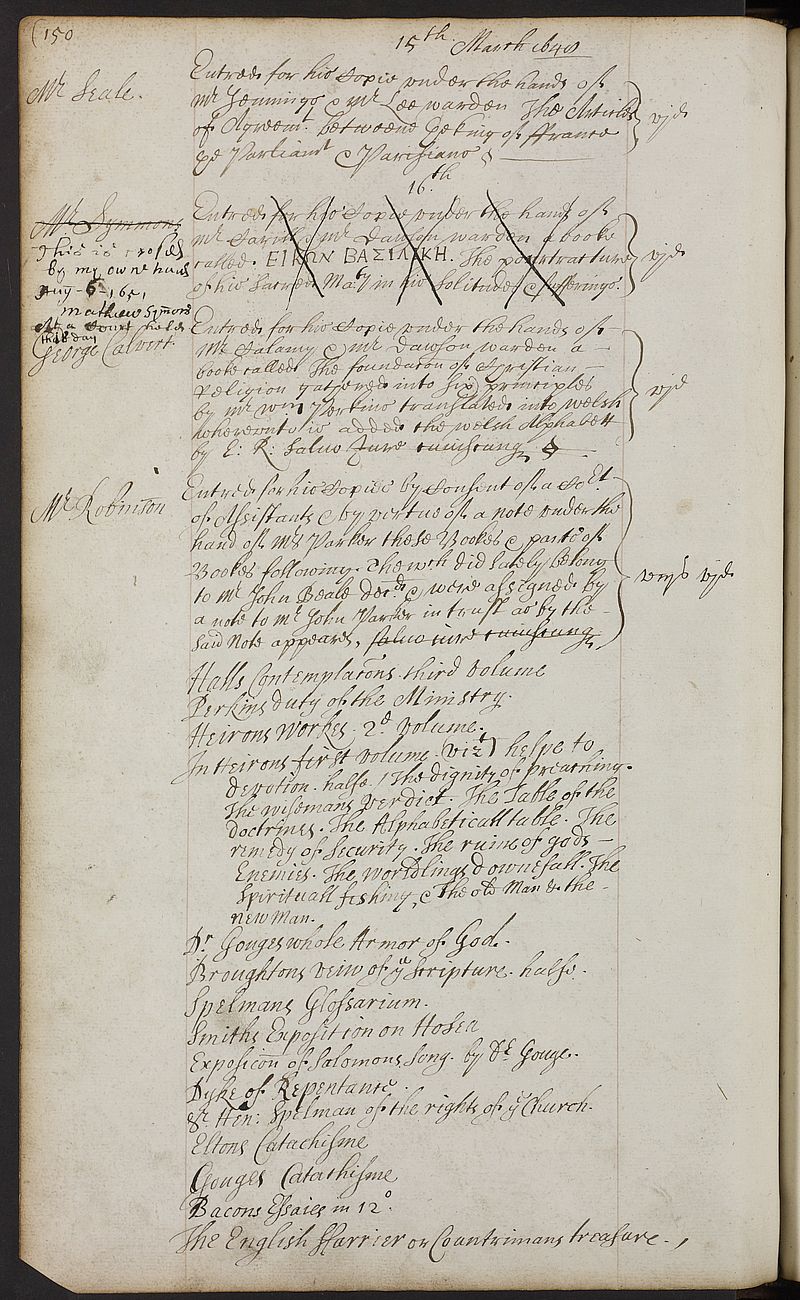 (150
15th. March 1648
Mr Seale.
Entred for his Copie under the hands of
Mr Jennings & Mr Lee warden The Articles
of Agreemt. betweene ye King of ffrance
ye Parliamt & Parisians
vjd
16.th
Mr Symmons
This is crossed
by my owne hand
Aug - 6 - 1651
Mathew Symons
At a Court held
that day
George Calvert.
Entred for his Copie under the hand of
Mr Dawson warden a booke
called. ΕΙΚΩΝ ΒΑΣΙΛΙΚΗ. The pourtracture
of his Sacred Maty in his Solitudes & sufferings.
vjd
Entred for his Copie under the hands of
Mr Calamy & Mr Dawson warden a
booke called The foundacon of Christian
Religion gathered into six principles
by Mr Wm Perkins translated into welsh
whereunto is added the welsh Alphabett
by E: R: salvo Jure cuiuscunq
vjd
Mr Robinson
Entred for his Copies by Consent of a Cort.
of Assistants & by vertue of a note under the
hand of Mr Parker these Bookes & parts of
Bookes following. The wch did lately belong
to Mr John Beale decd. & were assigned by
a note to Mr John Parker in trust as by the
said Note appeares, salvo iure cuiuscunq
vjd
Halls Contemplacons third volume
Perkins duty of the Ministry.
Heirons Workes. 2d volume.
In Heirons first volume. (vizt) helpe to
devotion. halfe / The dignity of preaching.
The wisemans verdict. The Table of the
doctrines. The Alphabeticall table. The
remedy of Security. The ruine of gods
Enemies. The worldlings downefall. The
Spirituall fishing, & The old Man & the
new Man.
Dr Gouges whole Armor of God.
Broughtons veiw of ye Scripture. halfe.
Spelmans Glossarium.
Smiths Exposition on Hosea
Exposicon of Salomons Song. by Dr Gouge.
Dyke of Repentance.
Sr Hen: Spelman of the rights of ye Church.
Eltons Catachisme
Gouges Catachisme
Bacons Essaies in 12°
The English ffarrier or Countrimans treasure.